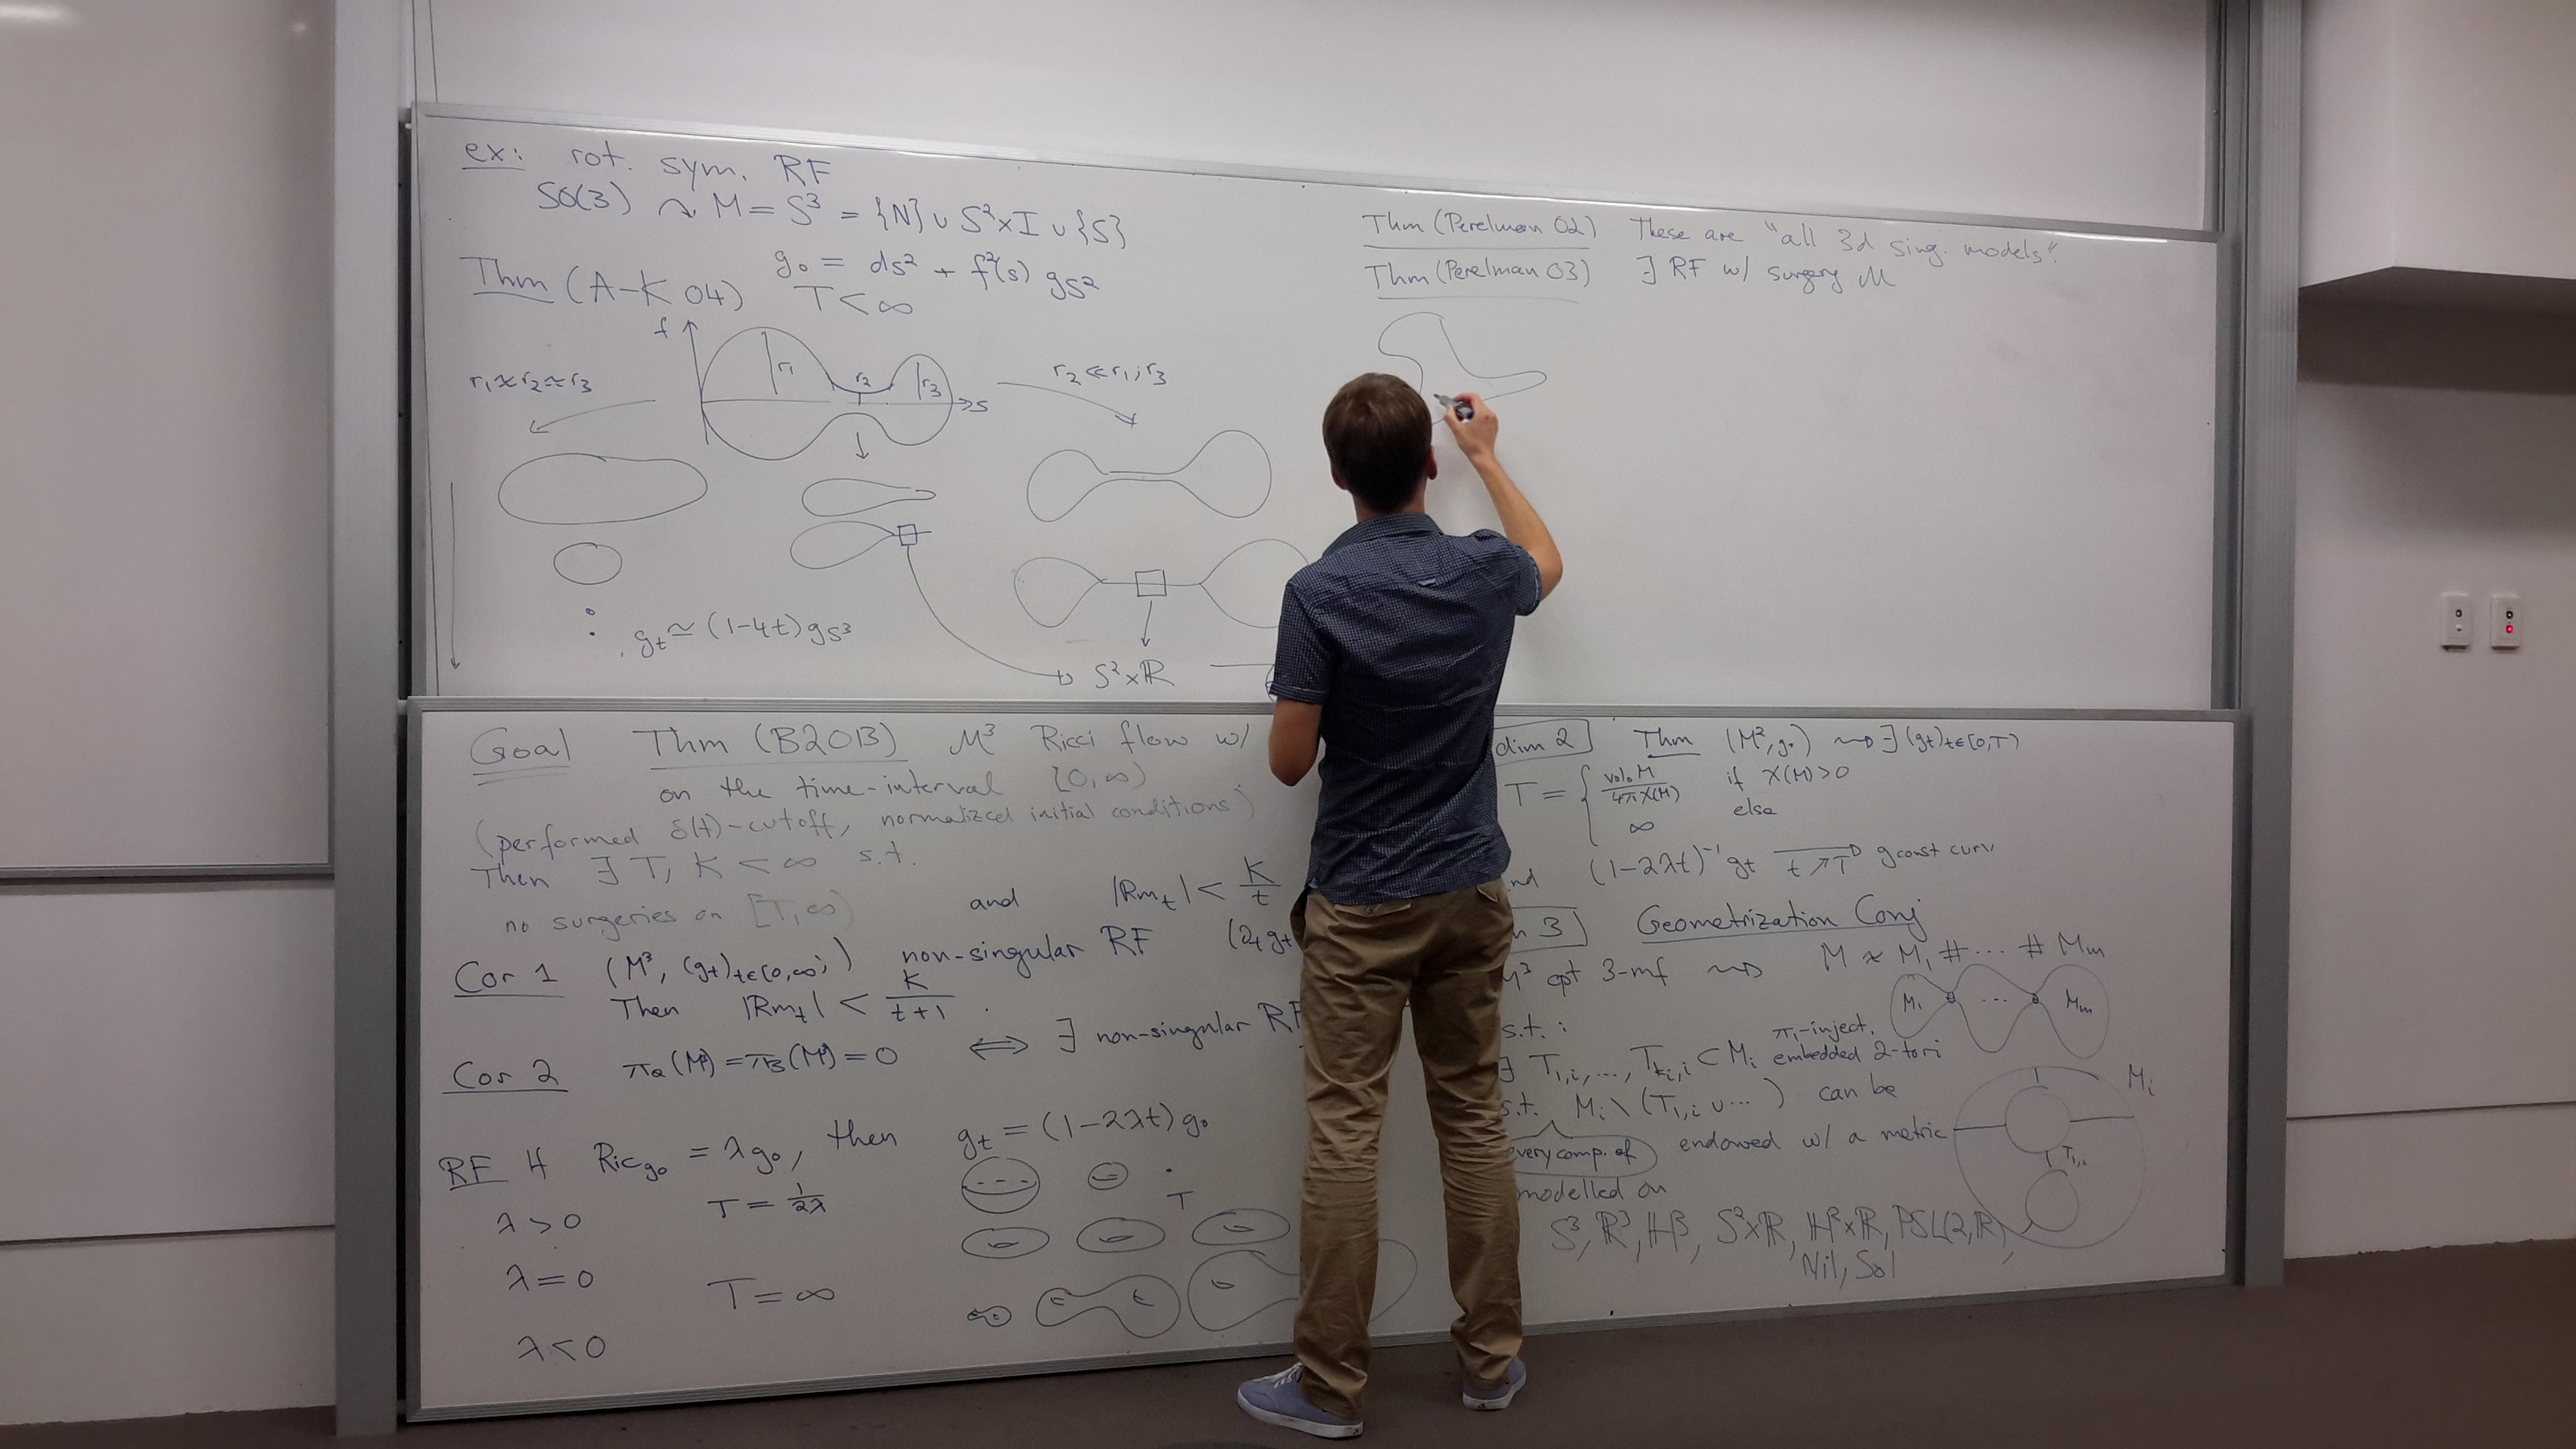 ex: rot. sym. RF
SO(3) ↷ M = S³ = {N} ∪ S²×I ∪ {S}
g₀ = ds² + f²(s) g_S²
Thm (A-K 04) T < ∞
f
r₁ r₂ r₃
s
r₁ ≈ r₂ ≈ r₃
r₂ ≪ r₁, r₃
g_t ≃ (1-4t) g_S³
S²×ℝ
Thm (Perelman 02) These are "all 3d sing. models".
Thm (Perelman 03) ∃ RF w/ surgery M
Goal Thm (B2013) M³ Ricci flow w/
on the time-interval [0,∞)
(performed δ(t)-cutoff, normalized initial conditions)
Then ∃ T, K < ∞ s.t.
no surgeries on [T,∞) and |Rm_t| < K/t
Cor 1 (M³, (g_t)_t∈[0,∞)) non-singular RF (∂_t g_t
Then |Rm_t| < K/(t+1) .
Cor 2 π₂(M³) = π₃(M³) = 0 ⟺ ∃ non-singular RF
RF If Ric_g₀ = λg₀, then g_t = (1-2λt) g₀
λ > 0 T = 1/2λ
T
λ = 0
T = ∞
λ < 0
dim 2 Thm (M², g₀) ⇝ ∃ (g_t)_t∈[0,T)
T = { vol₀M / 4πχ(M) if χ(M) > 0
∞ else
(1-2λt)⁻¹ g_t → t↗T g const curv
3 Geometrization Conj
M³ cpt 3-mf ⇝ M ≈ M₁ # ⋯ # M_m
M₁ ⋯ M_m
s.t.:
∃ T₁,ᵢ, ..., T_kᵢ,ᵢ ⊂ Mᵢ π₁-inject. embedded 2-tori
s.t. Mᵢ \ (T₁,ᵢ ∪ ⋯ ) can be
every comp. of endowed w/ a metric
modelled on
S³, ℝ³, ℍ³, S²×ℝ, ℍ²×ℝ, PSL(2,ℝ),
Nil, Sol
Mᵢ
T₁,ᵢ